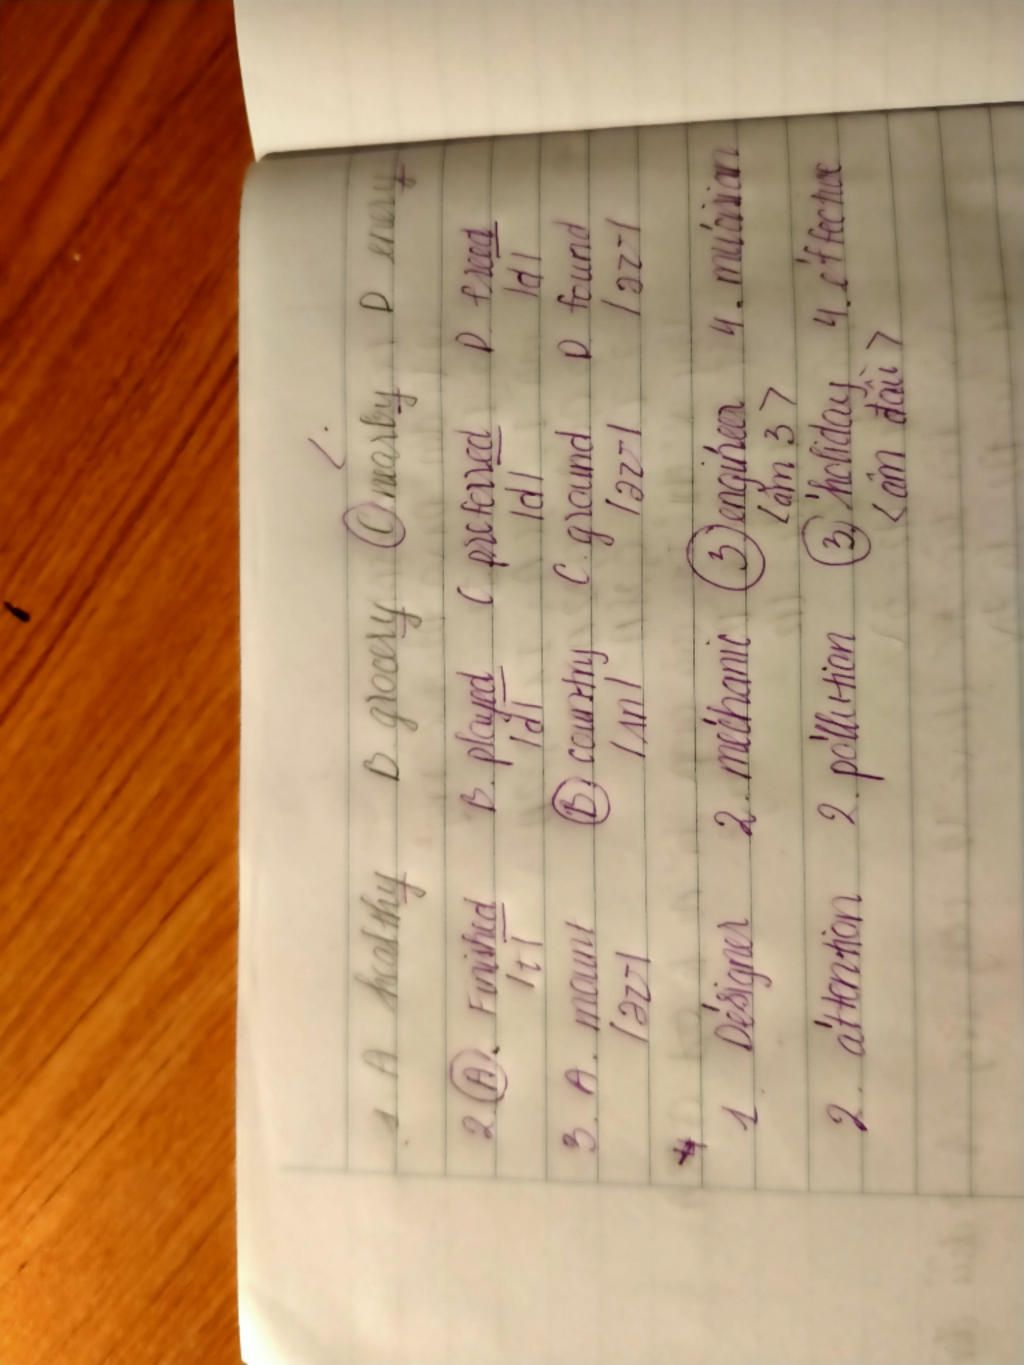 1 A healthy B. grocery C nearby D enery
2. A. Finished B. played C preferred D. freed
/t/ /d/ /d/ /d/
3. A. mount B. country C. ground D found
/ʌn/
1 Designer 2. mechanic 3 engineer 4. musician
< âm 3 >
2. attention 2. pollution 3 holiday 4.
< âm đầu >